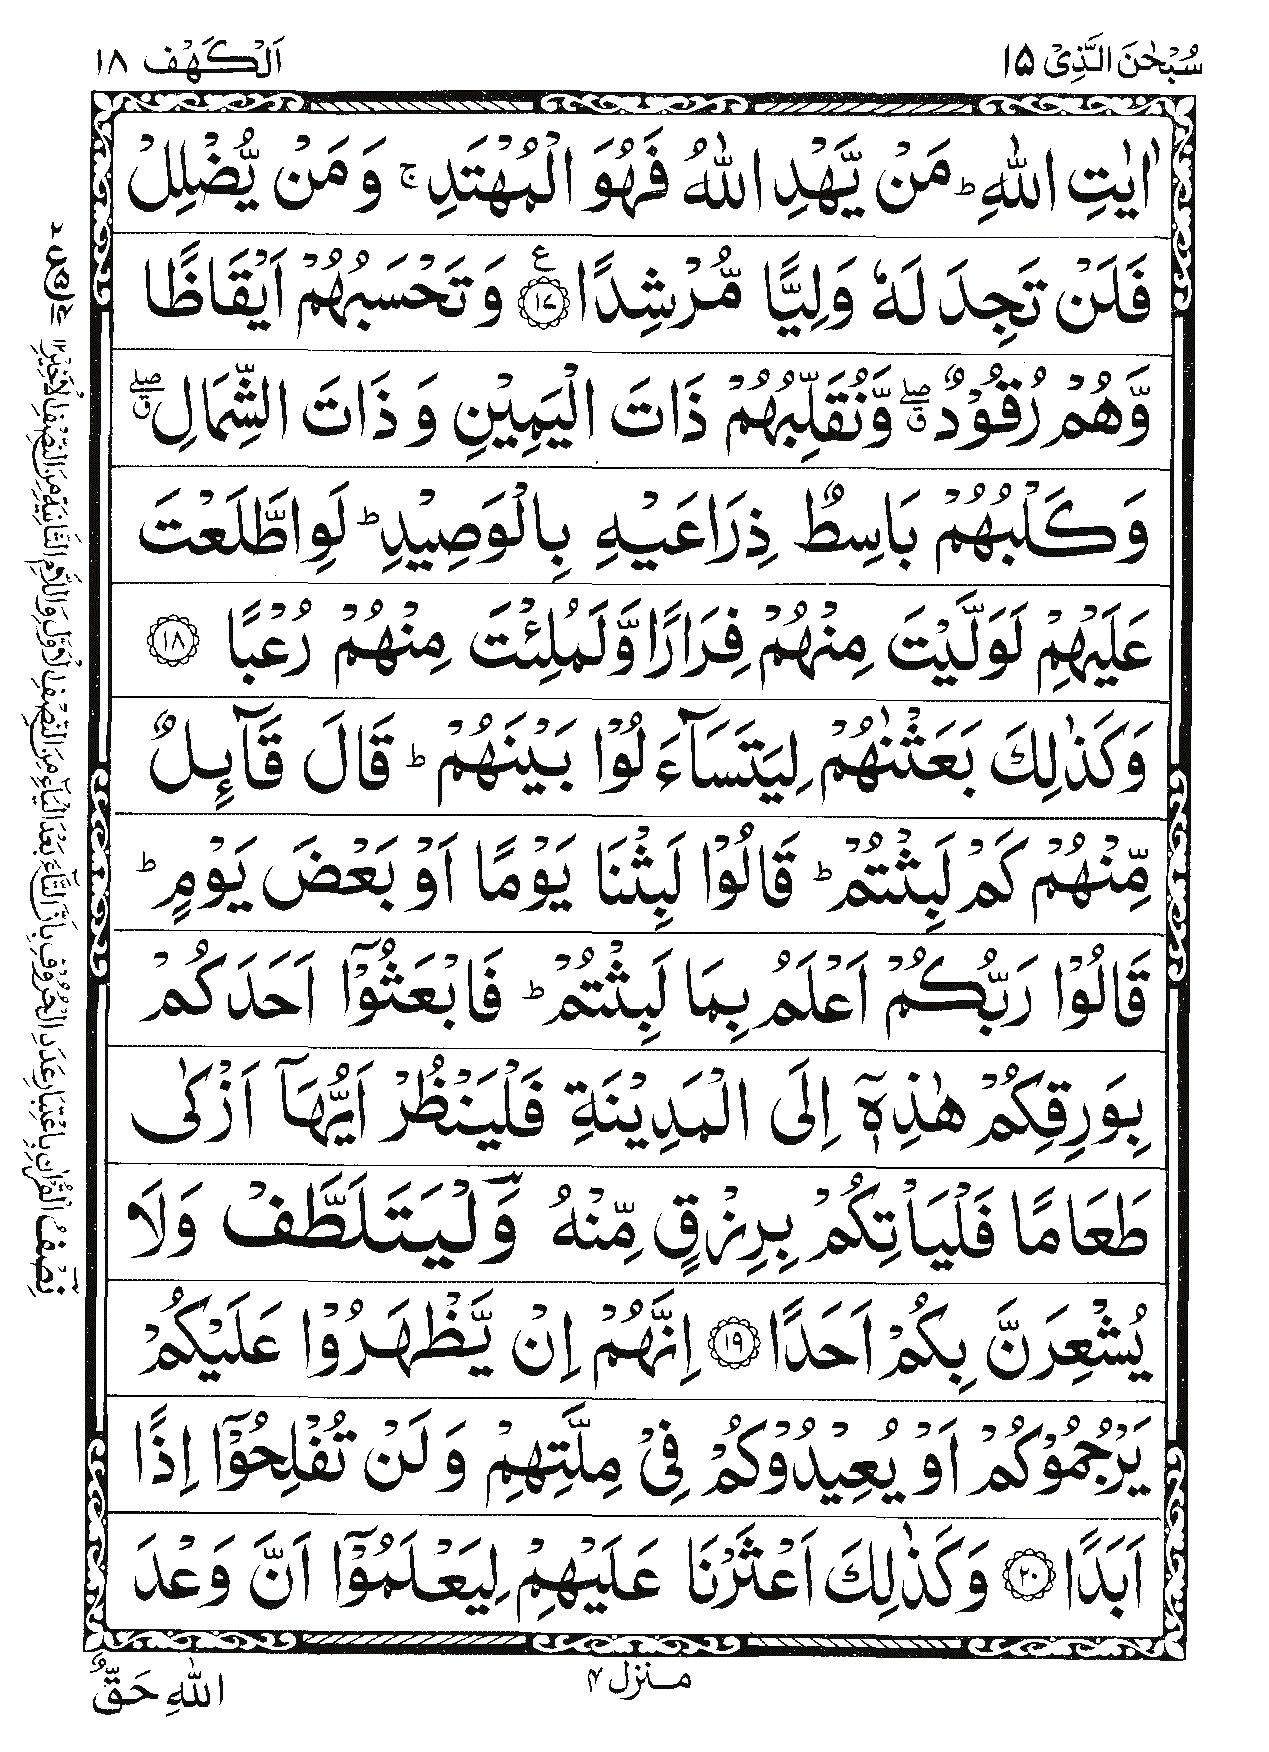 سُبْحٰنَ الَّذِیْ ۱۵
اَلْكَهْف ۱۸
اٰیٰتِ اللّٰهِ ؕ مَنْ یَّهْدِ اللّٰهُ فَهُوَ الْمُهْتَدِ ۚ وَ مَنْ یُّضْلِلْ
فَلَنْ تَجِدَ لَهٗ وَلِیًّا مُّرْشِدًا ۱۷ ع وَ تَحْسَبُهُمْ اَیْقَاظًا
وَّ هُمْ رُقُوْدٌ ۖۗ وَّ نُقَلِّبُهُمْ ذَاتَ الْیَمِیْنِ وَ ذَاتَ الشِّمَالِ ۖۗ
وَ كَلْبُهُمْ بَاسِطٌ ذِرَاعَیْهِ بِالْوَصِیْدِ ؕ لَوِ اطَّلَعْتَ
عَلَیْهِمْ لَوَلَّیْتَ مِنْهُمْ فِرَارًا وَّ لَمُلِئْتَ مِنْهُمْ رُعْبًا ۱۸
وَ كَذٰلِكَ بَعَثْنٰهُمْ لِیَتَسَآءَلُوْا بَیْنَهُمْ ؕ قَالَ قَآىِٕلٌ
مِّنْهُمْ كَمْ لَبِثْتُمْ ؕ قَالُوْا لَبِثْنَا یَوْمًا اَوْ بَعْضَ یَوْمٍ ؕ
قَالُوْا رَبُّكُمْ اَعْلَمُ بِمَا لَبِثْتُمْ ؕ فَابْعَثُوْۤا اَحَدَكُمْ
بِوَرِقِكُمْ هٰذِهٖۤ اِلَی الْمَدِیْنَةِ فَلْیَنْظُرْ اَیُّهَاۤ اَزْكٰی
طَعَامًا فَلْیَاْتِكُمْ بِرِزْقٍ مِّنْهُ وَ لْیَتَلَطَّفْ وَ لَا
یُشْعِرَنَّ بِكُمْ اَحَدًا ۱۹ اِنَّهُمْ اِنْ یَّظْهَرُوْا عَلَیْكُمْ
یَرْجُمُوْكُمْ اَوْ یُعِیْدُوْكُمْ فِیْ مِلَّتِهِمْ وَ لَنْ تُفْلِحُوْۤا اِذًا
اَبَدًا ۲۰ وَ كَذٰلِكَ اَعْثَرْنَا عَلَیْهِمْ لِیَعْلَمُوْۤا اَنَّ وَعْدَ
نِصْفُ الْقُرْاٰنِ بِاعْتِبَارِ عَدَدِ الْحُرُوْفِ بِاَنَّ التَّآءَ بَعْدَ الْیَآءِ مِنَ النِّصْفِ الْاَوَّلِ وَاللَّامِ الثَّانِیَةِ مِنَ النِّصْفِ الْاَخِیْرِ ۱۲
منزل ۴
اللّٰهِ حَقٌّ